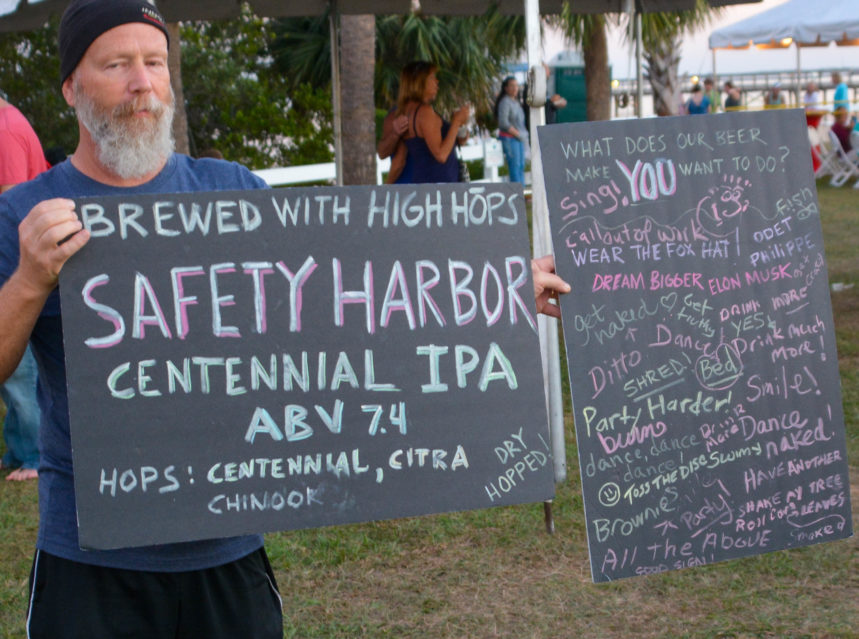 BREWED WITH HIGH HŌPS
SAFETY HARBOR
CENTENNIAL IPA
ABV 7.4
HOPS: CENTENNIAL, CITRA
CHINOOK
DRY
HOPPED!
WHAT DOES OUR BEER
MAKE YOU WANT TO DO?
Sing!
Call out of work
WEAR THE FOX HAT!
ODET
PHILIPPE
DREAM BIGGER ELON MUSK
get naked
Get
DRINK MORE
YES
Ditto
Dance
Drink much
more!
SHRED!
Bed
Smile!
Party Harder!
bum
Dance
naked!
dance, dance
dance!
TOSS THE DISC
HAVE ANOTHER
Brownies
Party
SHAKE MY TREE
LEAVES
Roll
All the Above
GOOD SIGN!